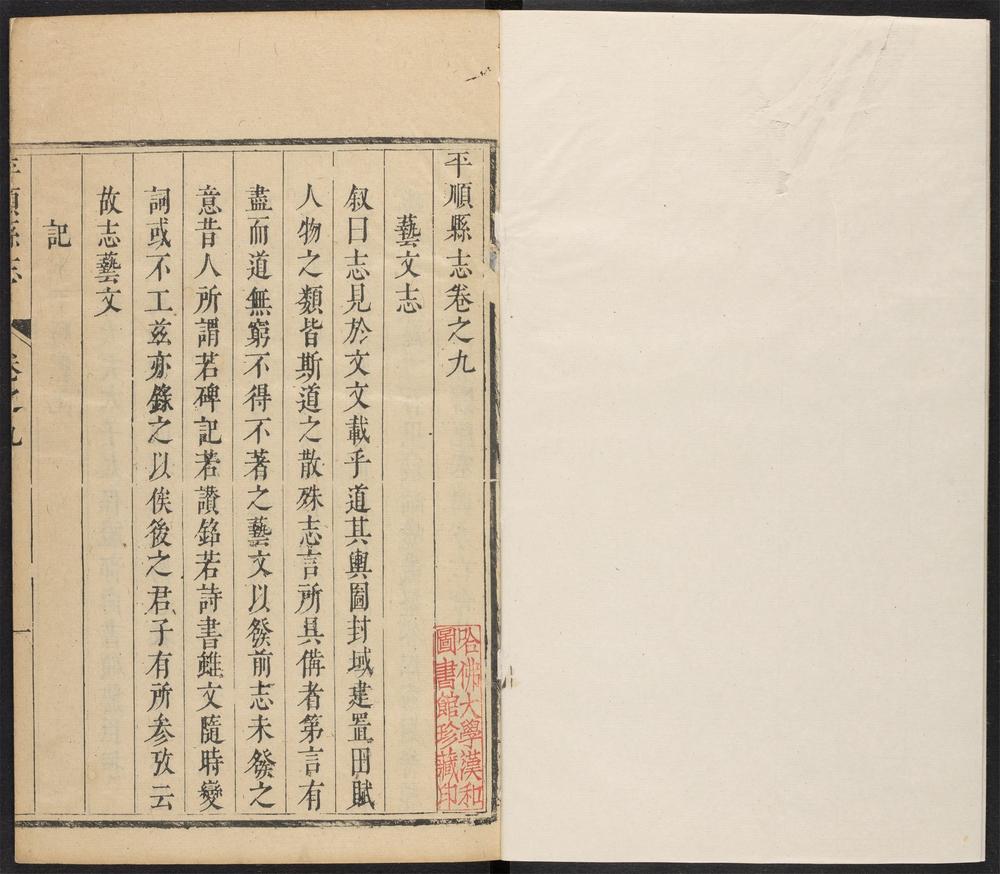 平順縣志卷之九
藝文志
叙曰志見於文文載乎道其輿圖封域建置田賦
人物之類皆斯道之散殊志言所具備者第言有
盡而道無窮不得不著之藝文以發前志未發之
意昔人所謂若碑記若讚銘若詩書雖文隨時變
詞或不工茲亦錄之以俟後之君子有所参攷云
故志藝文
記
平順縣志
卷之九
一
哈佛大學漢和
圖書館珍藏印